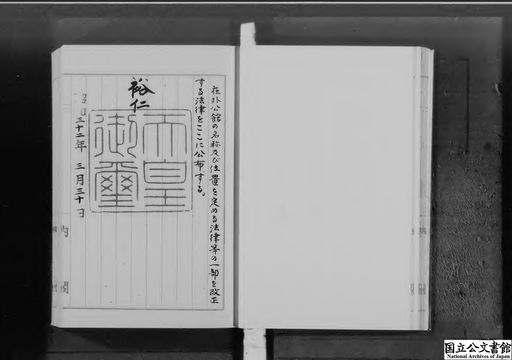 在外公館の名称及び位置を定める法律等の一部を改正
する法律をここに公布する。
裕仁
天皇
御璽
昭和三十二年 三月三十日
内閣
国立公文書館
National Archives of Japan